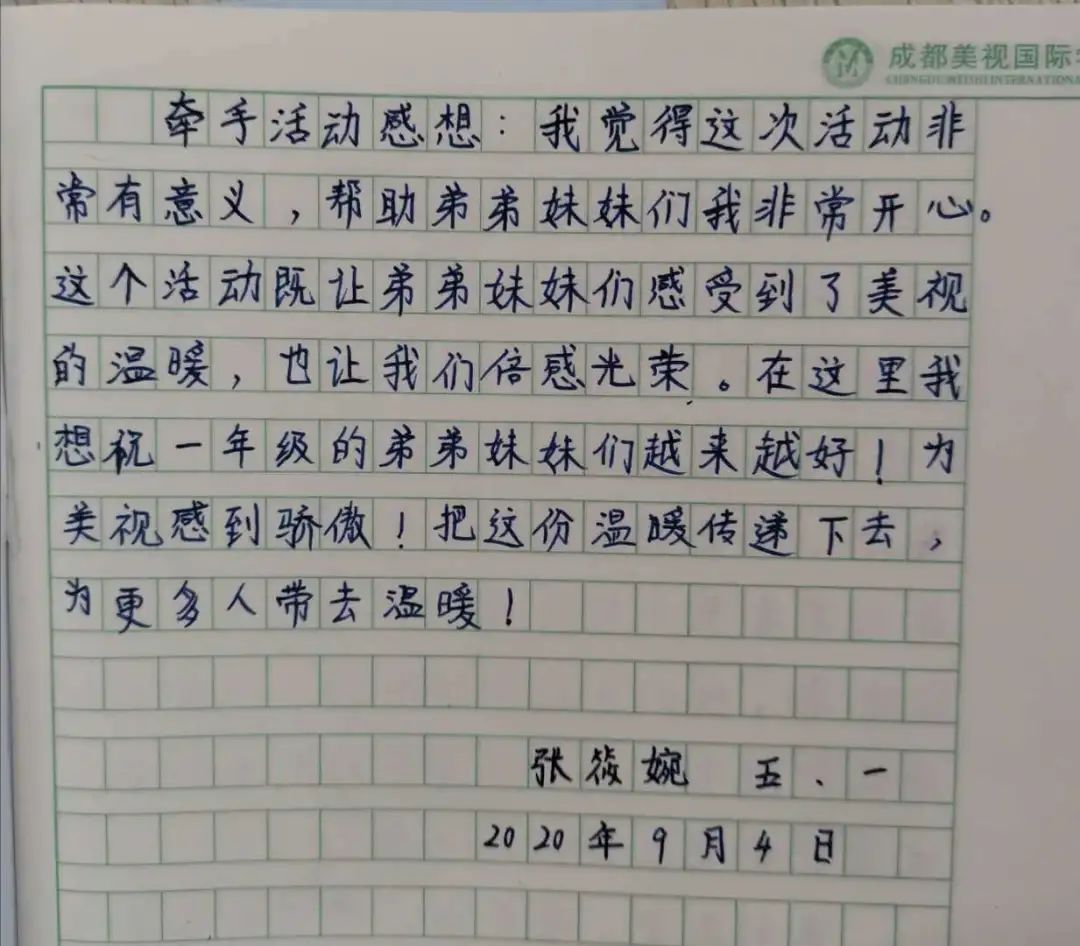 成都美视国际
CHENGDU MEISHI INTERNATIONA
牵手活动感想：我觉得这次活动非
常有意义，帮助弟弟妹妹们我非常开心。
这个活动既让弟弟妹妹们感受到了美视
的温暖，也让我们倍感光荣。在这里我
想祝一年级的弟弟妹妹们越来越好！为
美视感到骄傲！把这份温暖传递下去，
为更多人带去温暖！
张筱婉 五、一
2020年9月4日